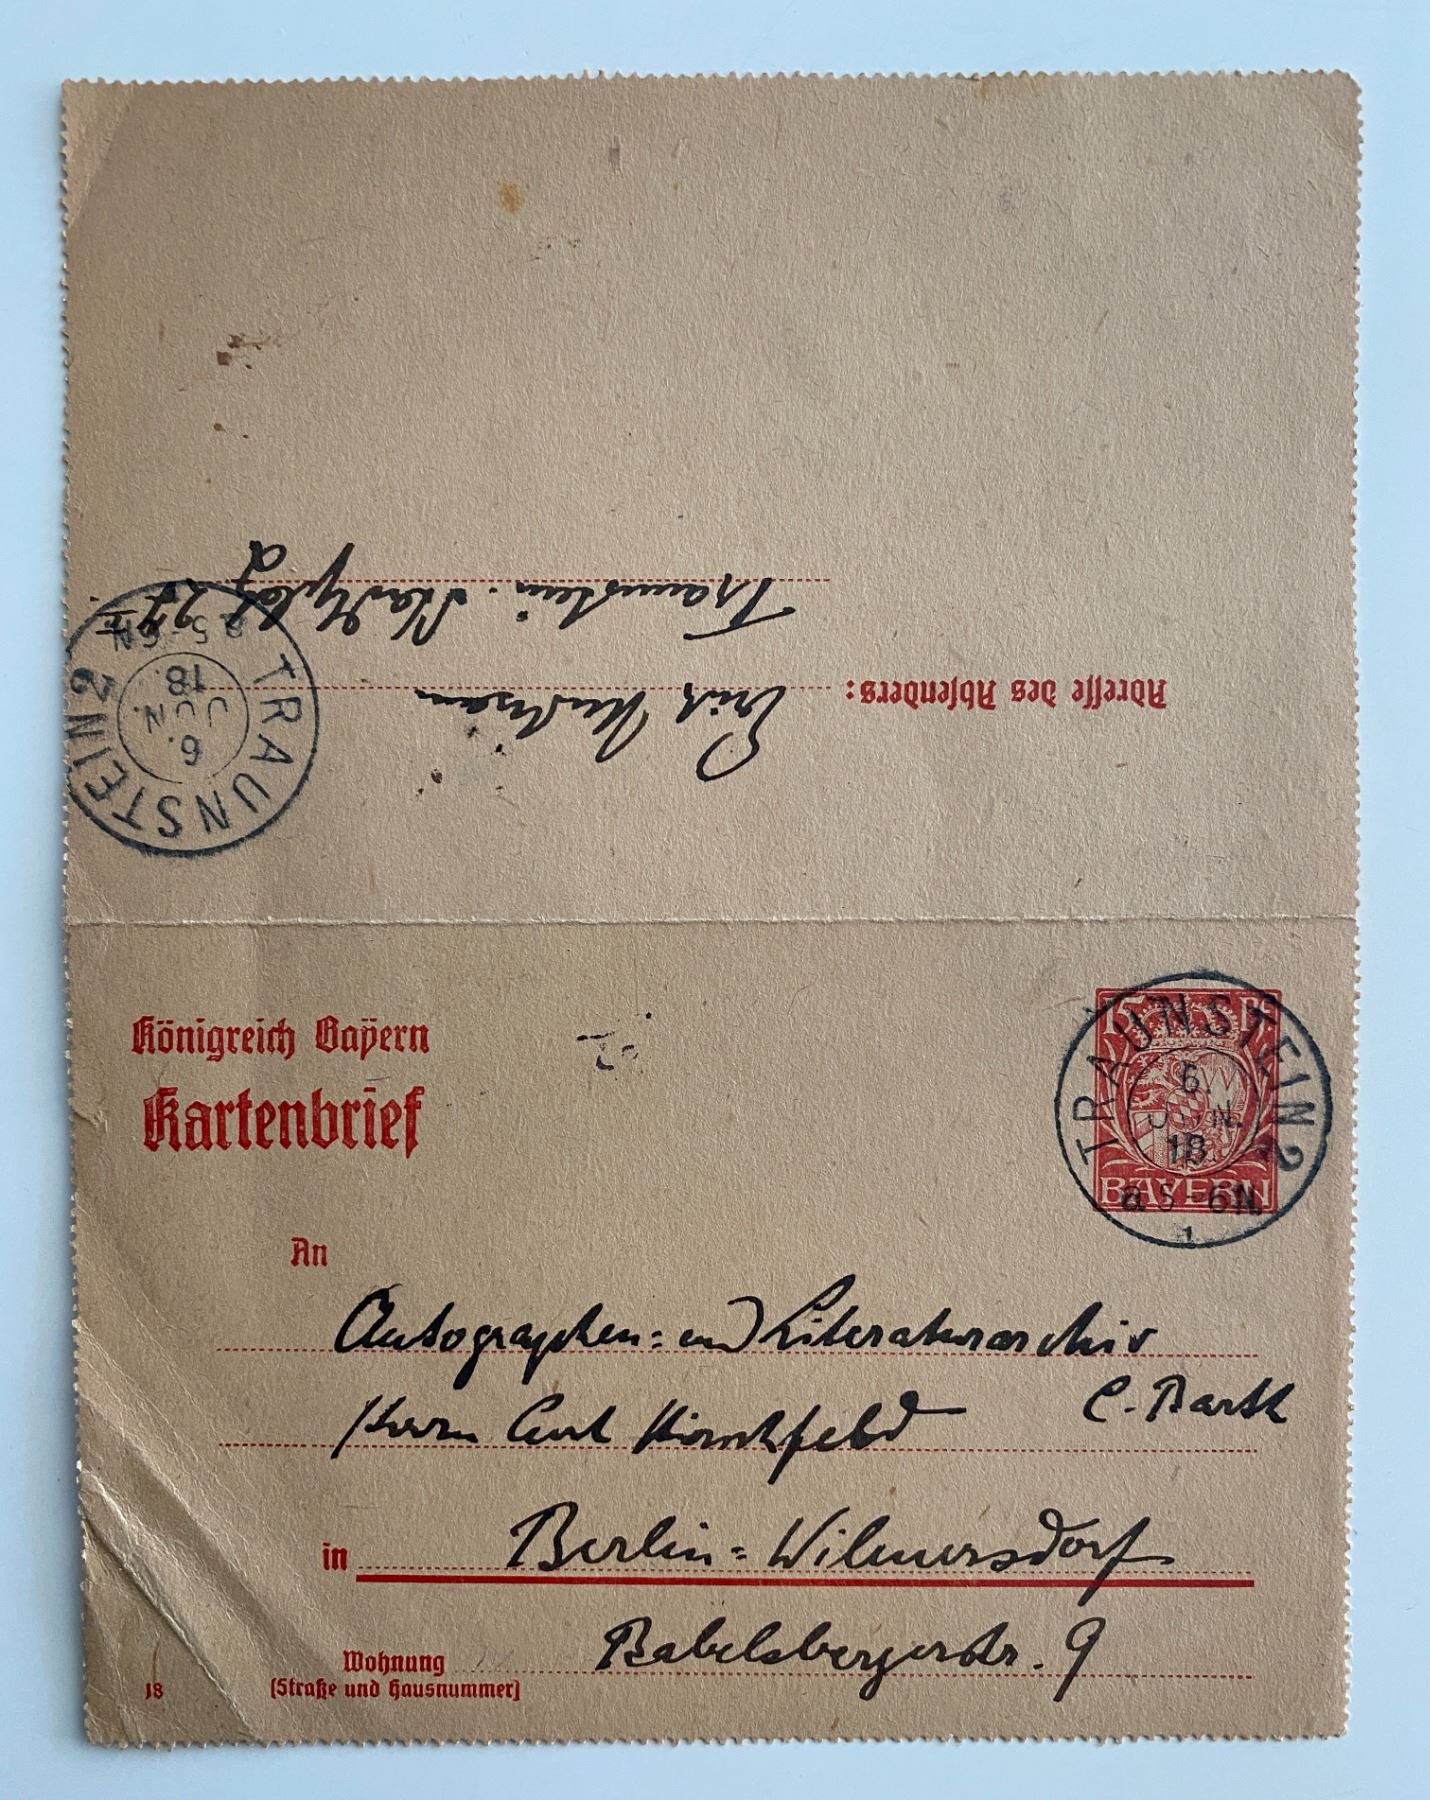 Adresse des Absenders: Erich Mühsam
Traunstein. Stadtplatz
TRAUNSTEIN 2
6.
JUN.
18.
a 5-6N
Königreich Bayern
Kartenbrief
15 Pf
BAYERN
TRAUNSTEIN 2
6.
JUN.
18.
a 5-6N.
1
An
Autographen= und Literaturarchiv
Herrn Curt Hirschfeld C. Barth
in Berlin=Wilmersdorf
Wohnung Babelsbergerstr. 9
(Straße und Hausnummer)
18